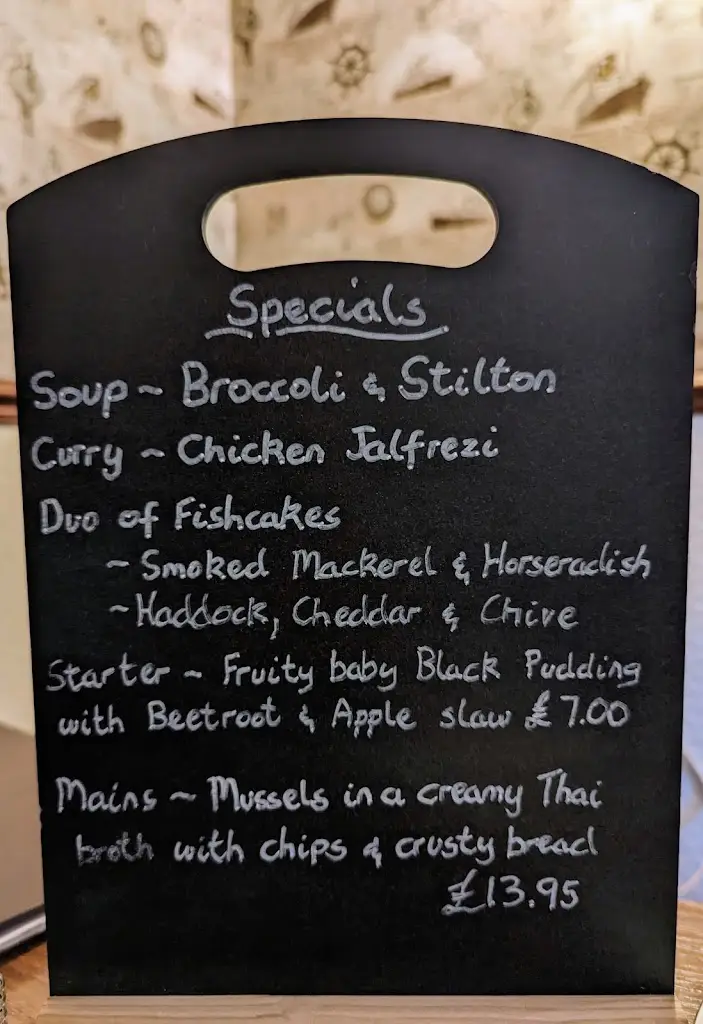 Specials
Soup ~ Broccoli & Stilton
Curry ~ Chicken Jalfrezi
Duo of Fishcakes
~ Smoked Mackerel & Horseradish
~ Haddock, Cheddar & Chive
Starter ~ Fruity baby Black Pudding
with Beetroot & Apple slaw £7.00
Mains ~ Mussels in a creamy Thai
broth with chips & crusty bread
£13.95